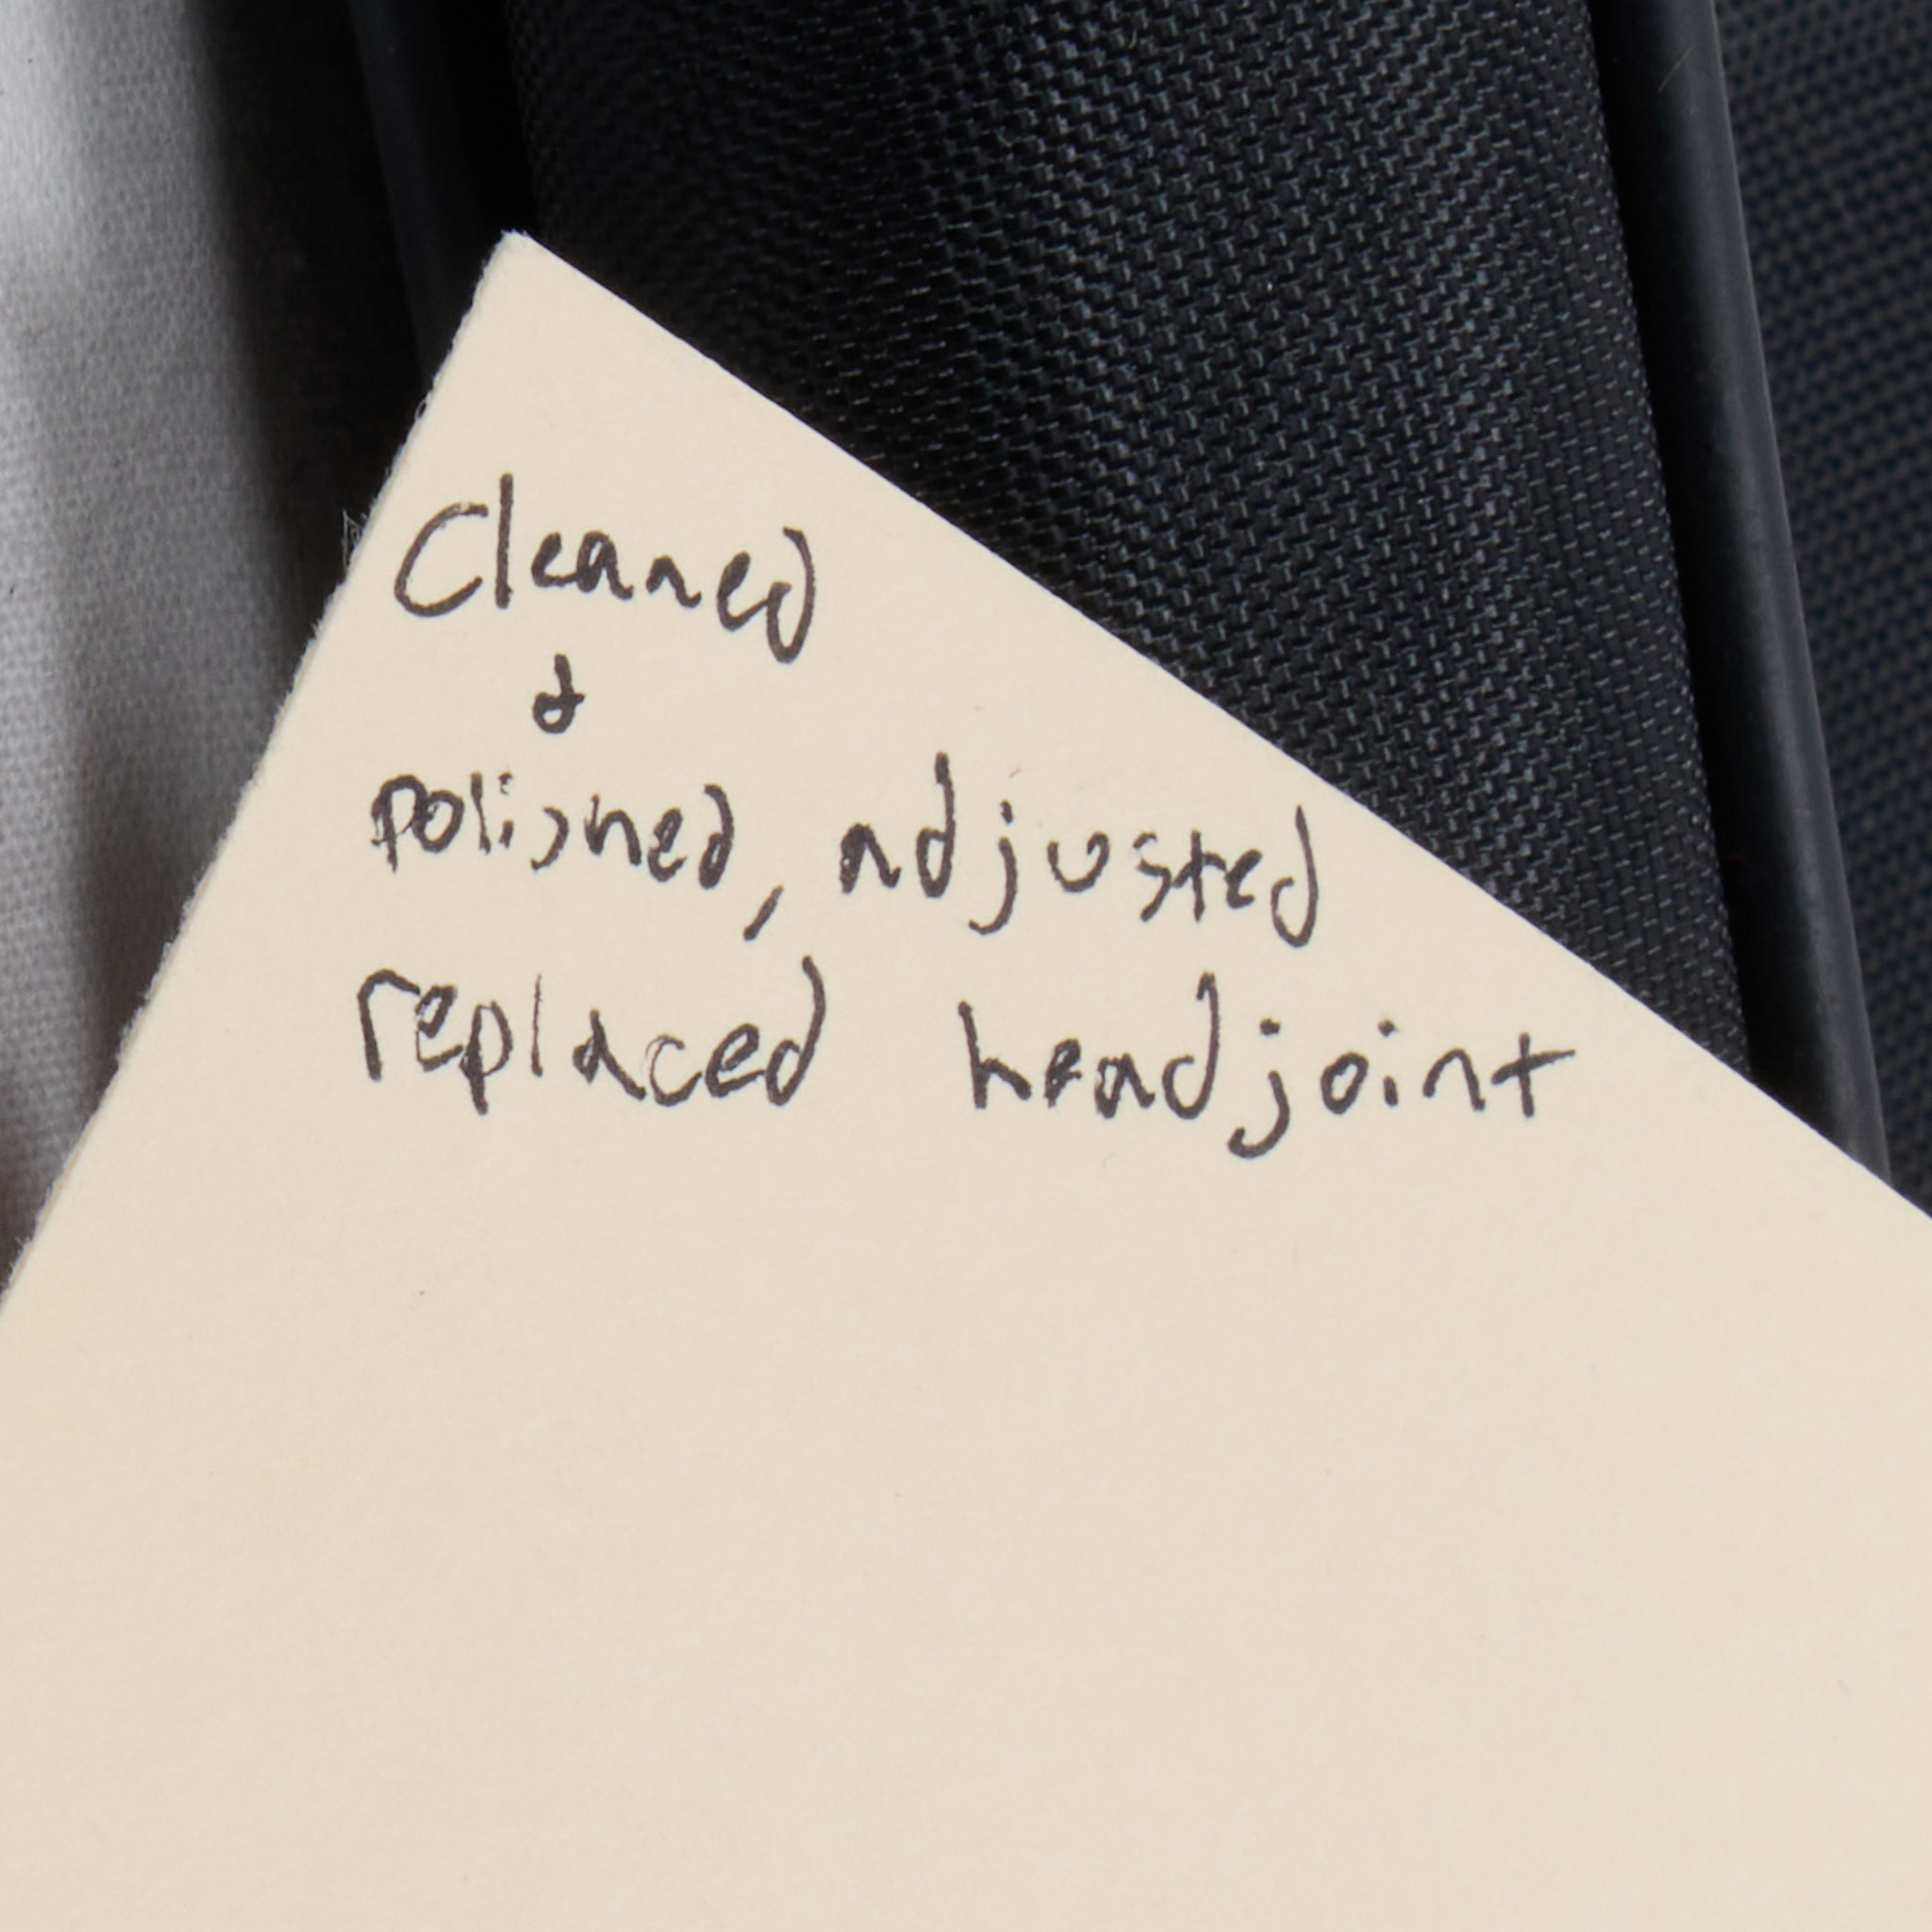 Cleaned
&
polished, adjusted
replaced headjoint